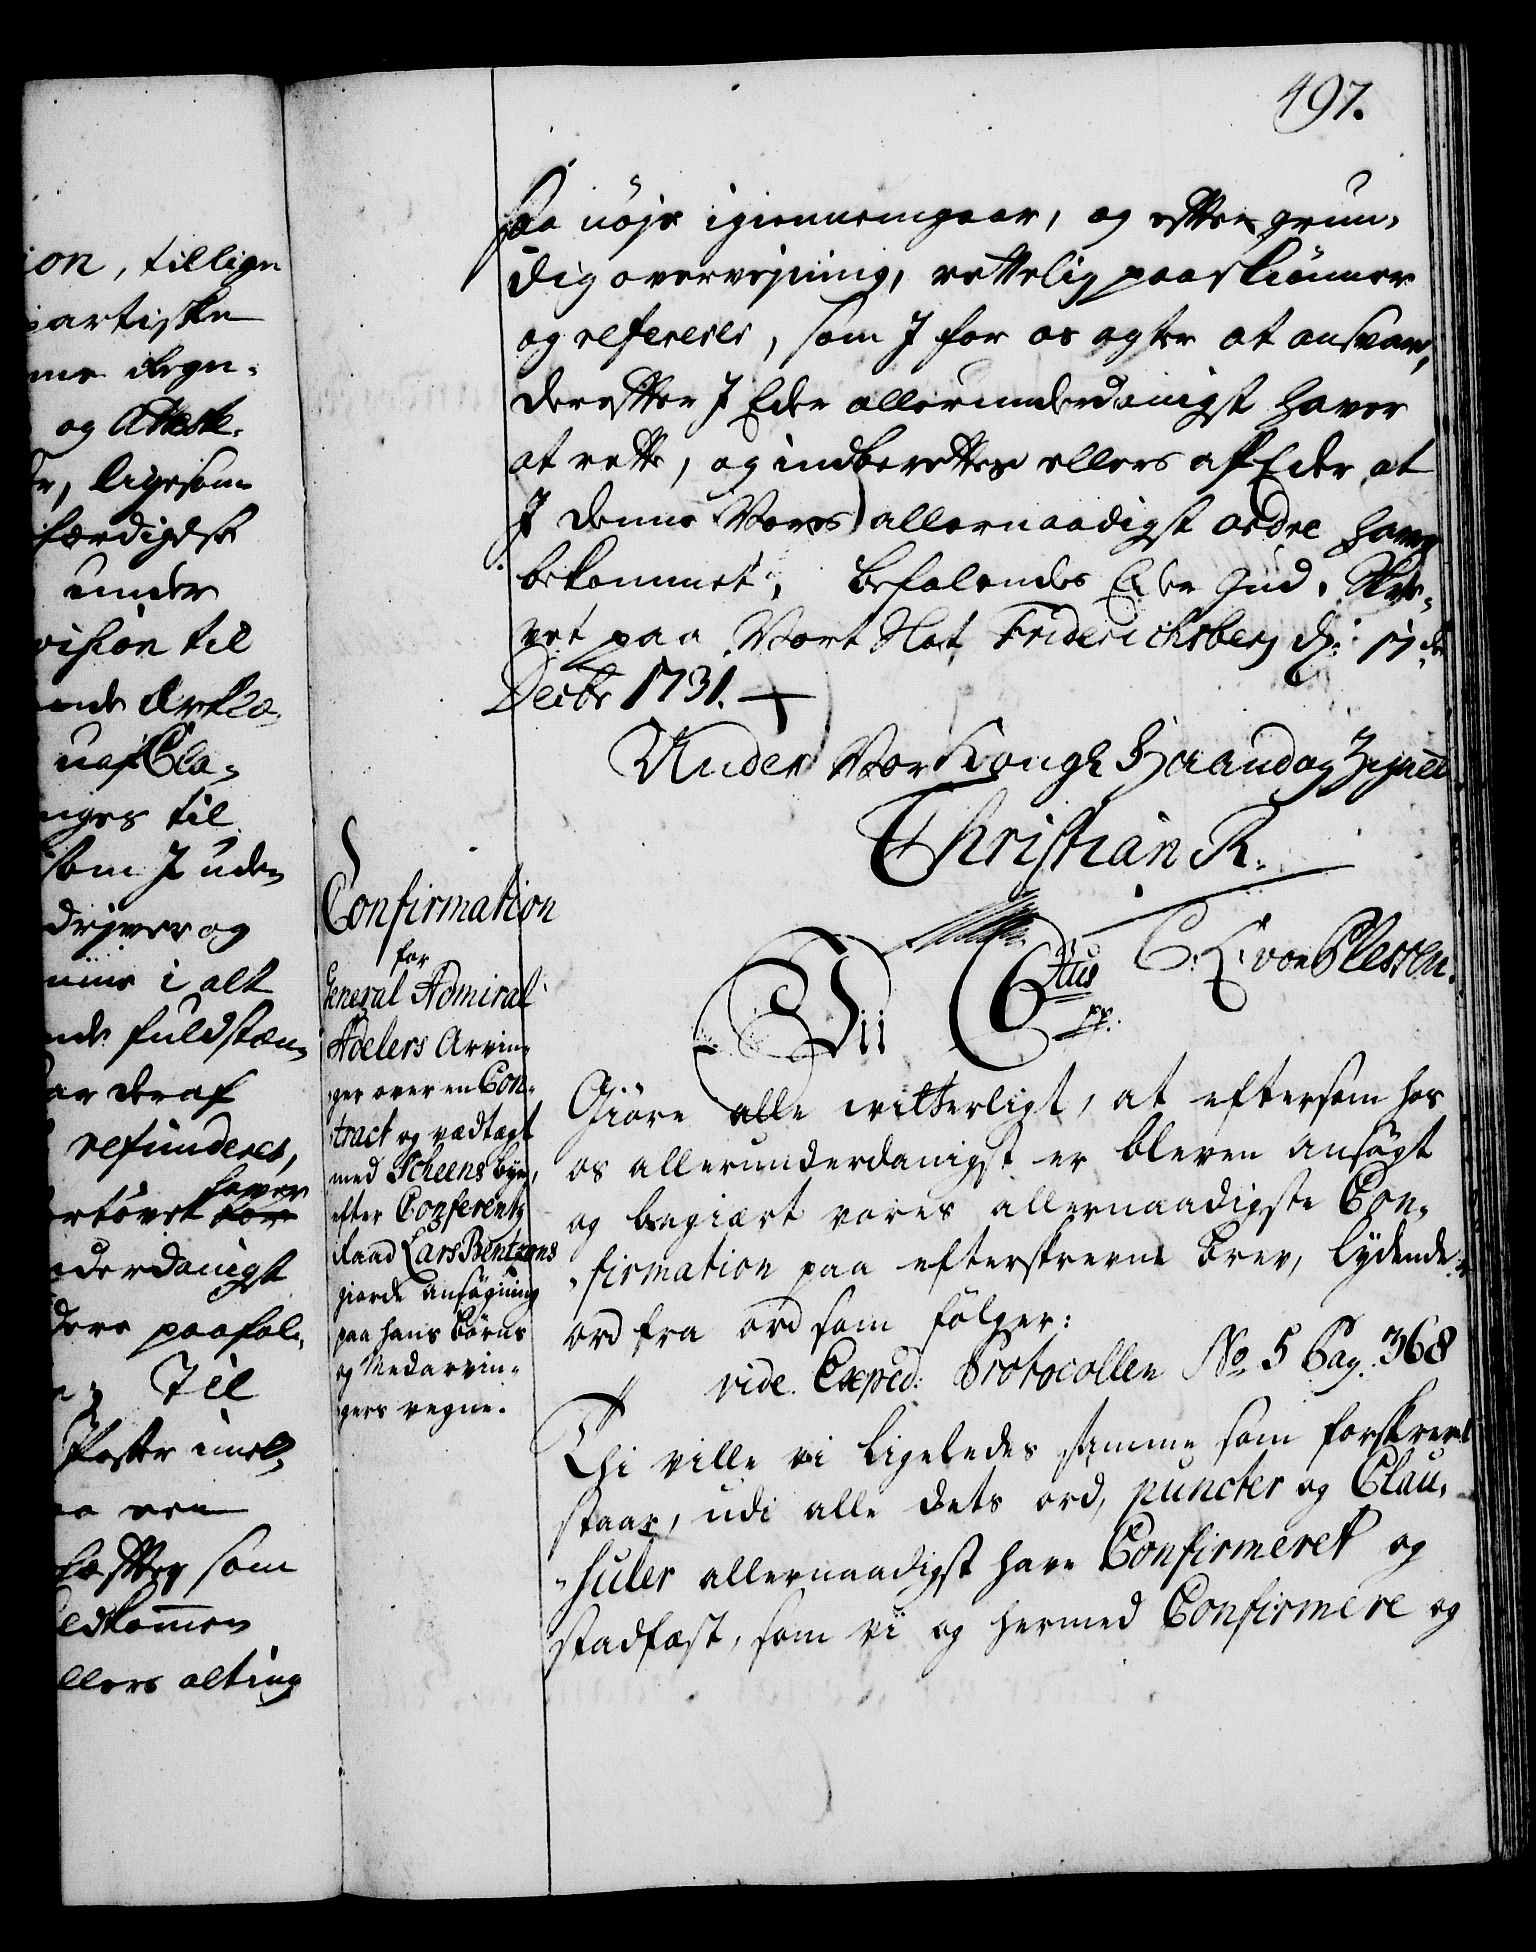 497.
ion, tillige
partiske
og Atteste-
, ligesom
færdigelse
under
vision til
ende Erklæ-
nges til
som I uden
driver og
i alt
ende fuldstæn-
ar deraf
refunderes,
haver
nderdanigst
dere paafol-
Til
Poster imel-
som
edkommen
llers alting
saa nøje igiennemgaar, og efter grun-
dig overvejning, rettelig paaskiønner
og refererer, som I for os agter at ansvare,
derefter I Eder allerunderdanigst haver
at rette, og indberettes ellers af Eder, at
I denne Vores allernaadigst ordre haver
bekommet, befalendes Eder Gud. Skre-
vet paa Vort Slot Friderichsberg d: 17de
Decbr 1731.
Under Vor Kongl Haand og Zignet
Christian R.
C. A. von Plessen.
Confirmation
for
General Admiral
Adelers Arvin-
ger over en Con-
tract og vedtægt
med Scheens bye,
efter Conferentz
Raad Lars Bentzons
giorde ansøgning
paa hans børns
og Medarvin-
gers vegne.
Vii C6tus pp:
Giøre alle vitterligt, at eftersom hos
os allerunderdanigst er bleven ansøgt
og begiært vores allernaadigste Con-
firmation paa efterskrevne brev, lydende
ord fra ord som følger:
vide Exped: Protocollen No 5 Pag. 368
Thi ville vi ligeledes samme som forskrevet
staar, udi alle dets ord, puncter og Clau-
suler allernaadigst have Confirmeret og
stadfæst, som vi og hermed Confirmere og